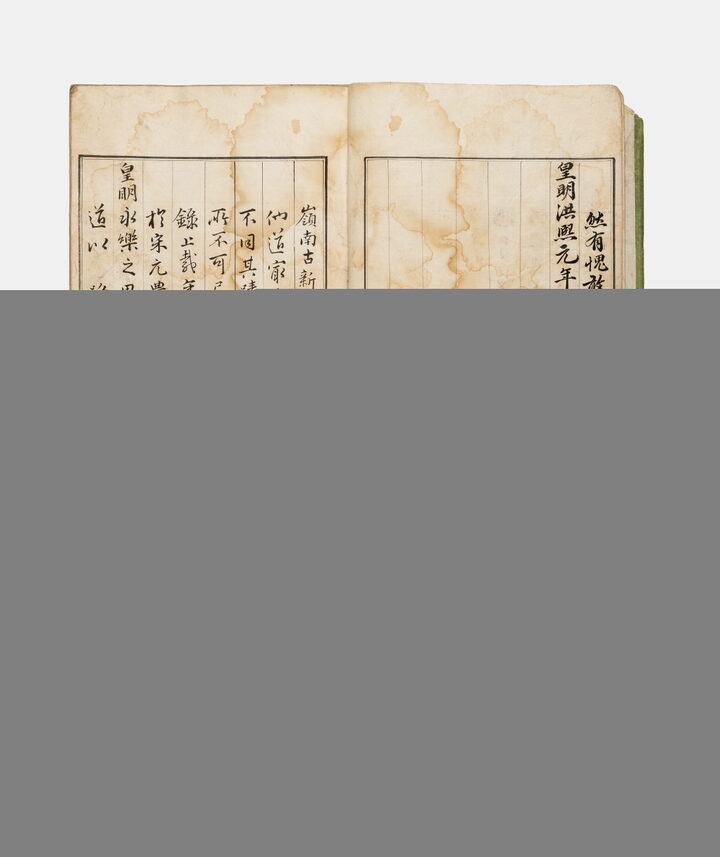 然有愧敢
皇明洪熙元年
嶺南古新
他道
不同其
所不可
錄上
於宋元
皇明永樂之
道以